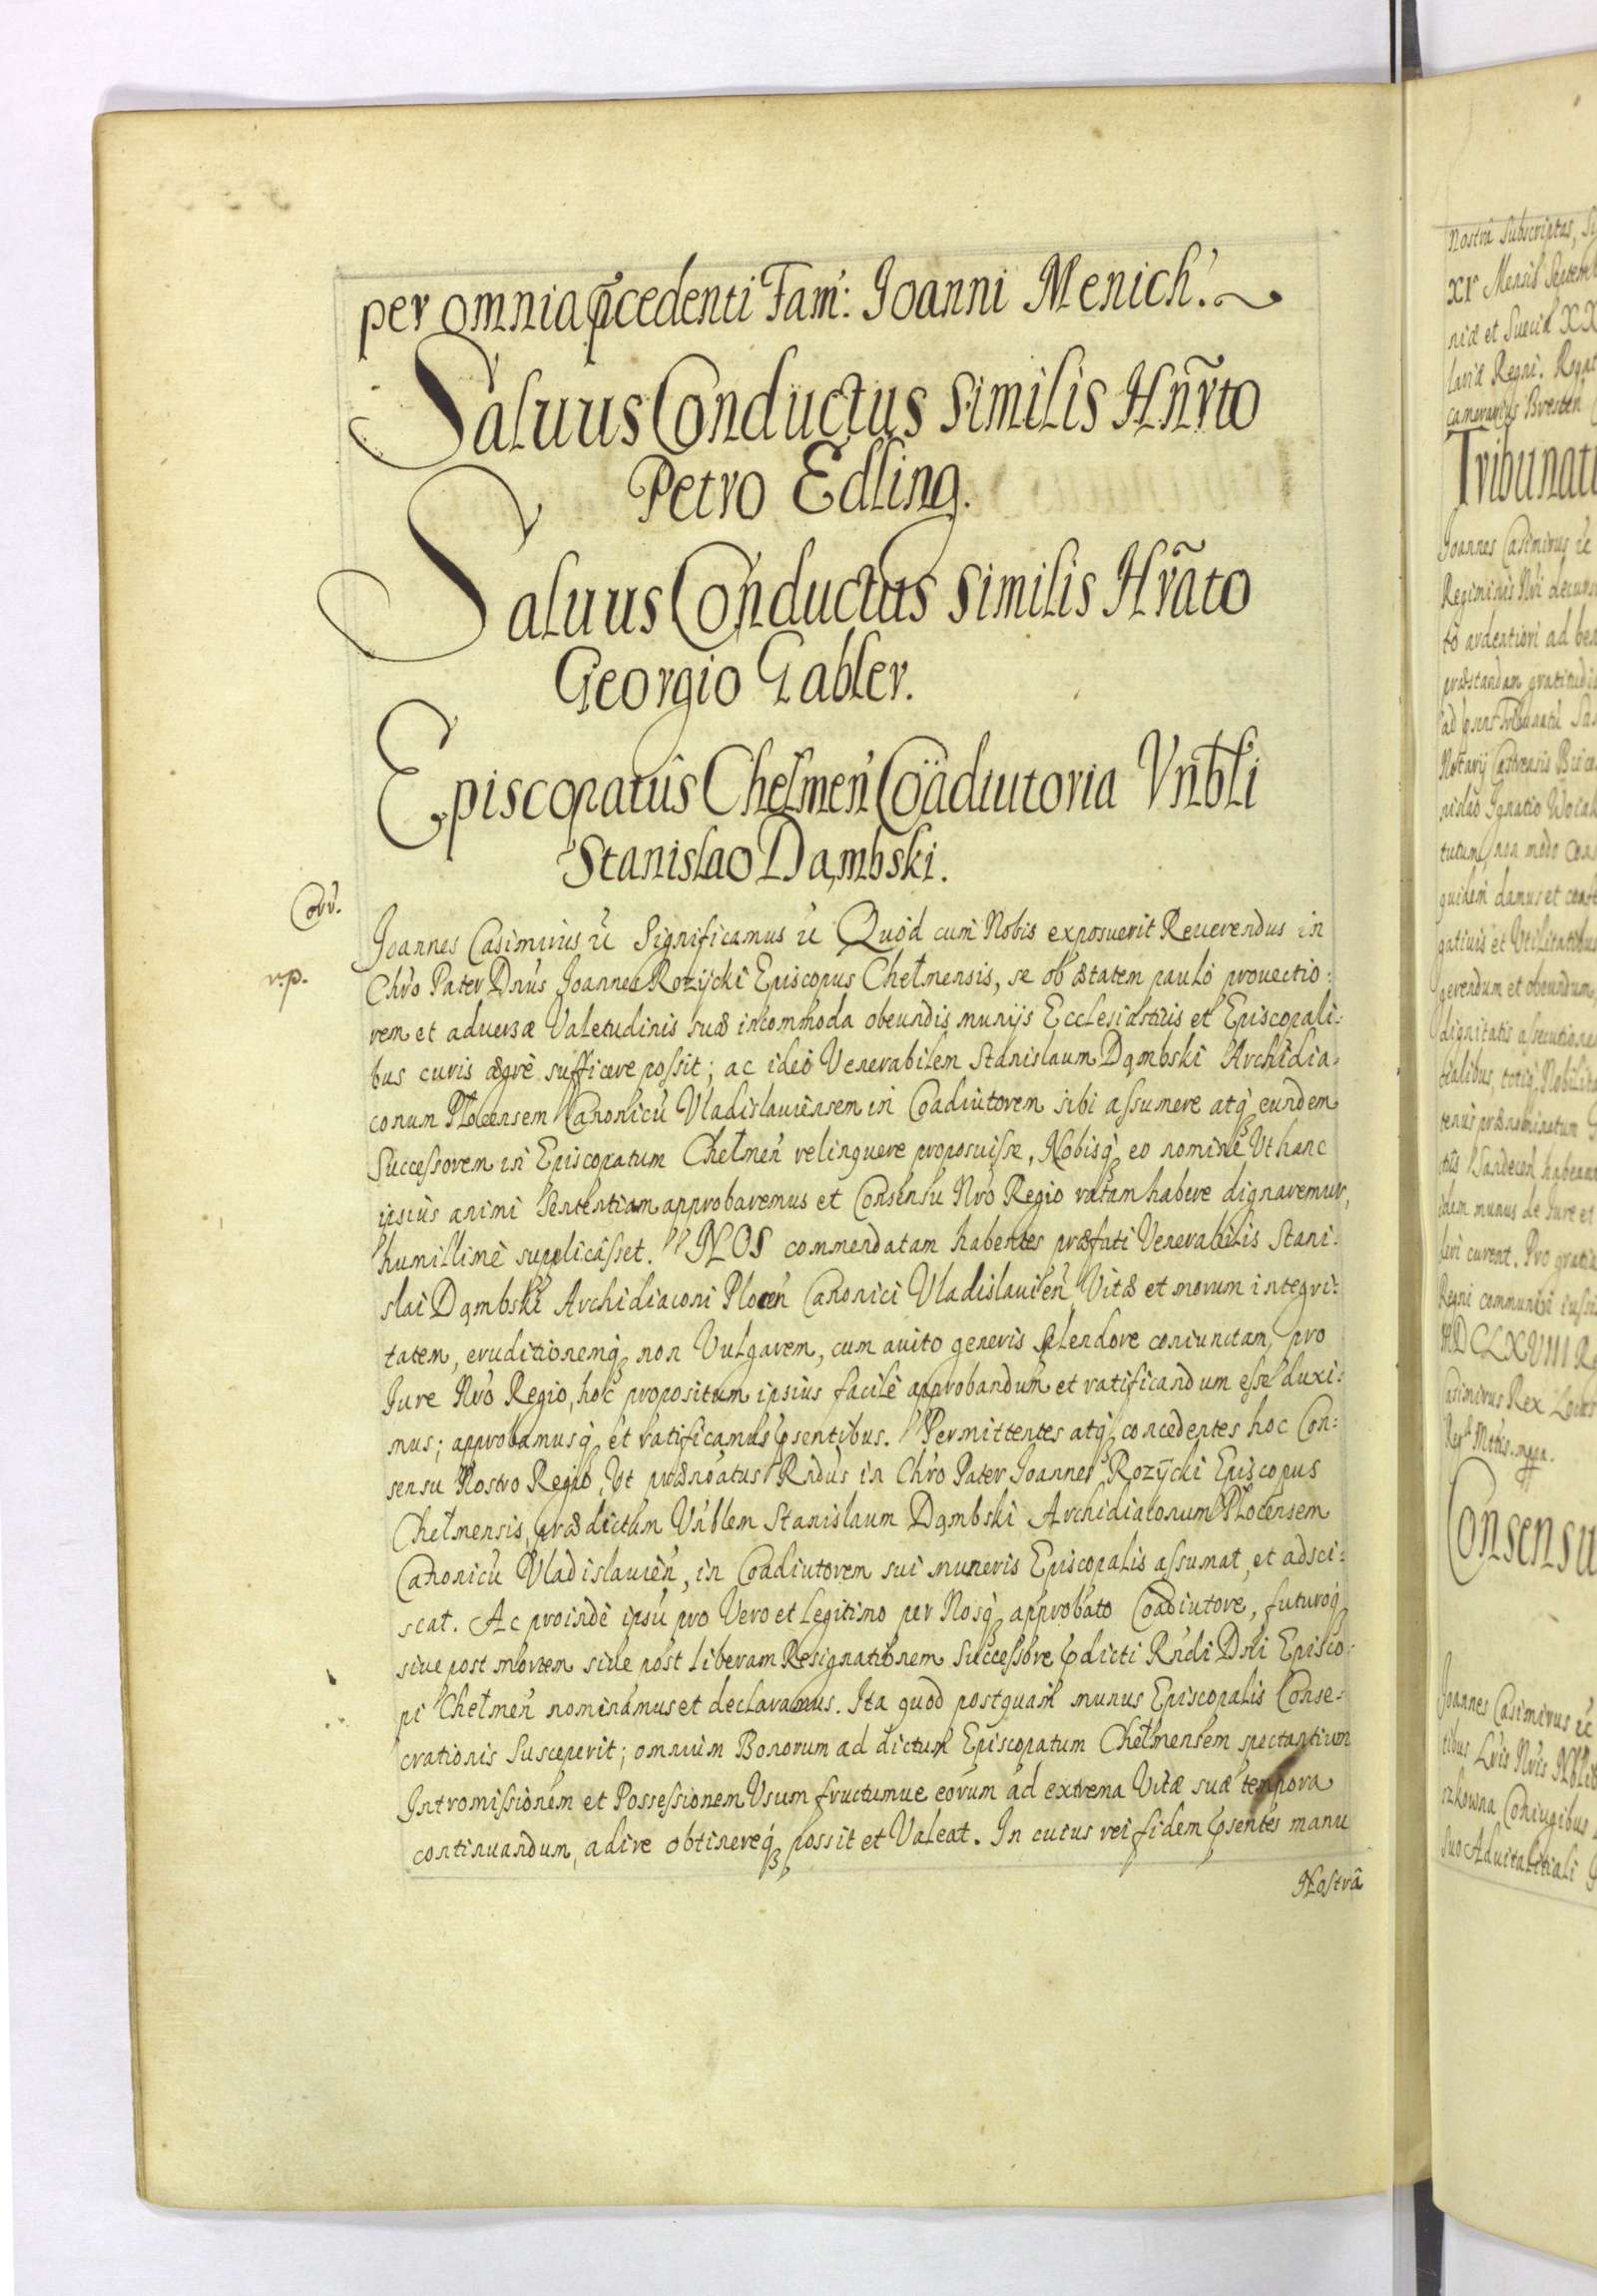 per omnia p̄cedenti Fam: Joanni Menich.
Saluus Conductus similis Hnr̃to
Petro Edling.
Saluus Conductus similis Hr̃ato
Georgio Gabler.
Episcopatus Chełmeń Coadiutoria Vnbli
Stanislao Dąmbski.
Corr.
Joannes Casimirus etc Significamus etc Quod cum Nobis exposuerit Reuerendus in
rp.
Chrõ Pater Dnus Joannes Rozycki Episcopus Chełmensis, se ob ætatem paulò prouectio:
rem et aduersæ Valetudinis suæ incommoda obeundis munijs Ecclesiasticis et Episcopali:
bus curis ægrè sufficere possit; ac ideò Venerabilem Stanislaum Dąmbski Archidia:
conum Płocensem Canonicũ Vladislauiensem in Coadiutorem sibi assumere atq́ eundem
Successorem in Episcopatum Chełmeń relinquere proposuisse, Nobisq́ eo nomine Vt hanc
ipsius animi Sententiam approbaremus et Consensu Nrõ Regio ratam habere dignaremur,
humillimè supplicasset. NOS commendatam habentes præfati Venerabilis Stani:
slai Dąmbski Archidiaconi Płoceń Canonici Vladislauień Vitæ et morum integri:
tatem, eruditionemq́ non Vulgarem, cum auito generis splendore coniunctam, pro
Jure Nrõ Regio, hoc propositum ipsius facilè approbandum et ratificandum esse duxi:
mus; approbamusq́ et ratificamus p̃sentibus. Permittentes atq́ concedentes hoc Con:
sensu Nostro Regio, Vt prænoatus Rndus in Chrõ Pater Joannes Rozycki Episcopus
Chełmensis, prædictum Vnblem Stanislaum Dąmbski Archidiaconum Płocensem
Canonicũ Vladislauień, in Coadiutorem sui muneris Episcopalis assumat, et adsci:
scat. Ac proindè ipsũ pro Vero et Legitimo per Nosq́ approbato Coadiutore, futuroq́
siue post mortem siue post liberam Resignationem Successore p̃dicti Rndi Dni Episco:
pi Chełmeń nominamus et declaramus. Ita quod postquam munus Episcopalis Conse:
crationis Susceperit; omnium Bonorum ad dictum Episcopatum Chełmensem spectantium
Intromissionem et Possessionem Vsum fructumue eorum ad extrema Vitæ suæ tempora
continuandum, adire obtinereq́ possit et Valeat. In cuius rei fidem p̃sentes manu
Nostrâ
nostra Subscriptas,
XI Mensis
niæ et Sueciæ XX
lariæ Regni.
Camerarius Bresten
Tribunat
Joannes Casimirus etc
Regiminis Nri
ardentiori ad
præstandam
Notarij Castrensis
nislao Ignatio
tutum, non modo
quidem damus et
gatiuis et Vtilitatibus
gerendum et obeundum,
dignitatis assecutione
tenus prænominatum
Sandecen habeant
idem munus de Jure et
curent. Pro
Regni communiri
MDCLXVIII
Casimirus Rex
Consensu
Joannes Casimirus etc
tibus Lris Nris
Coniugibus
suo Aduitalitiali